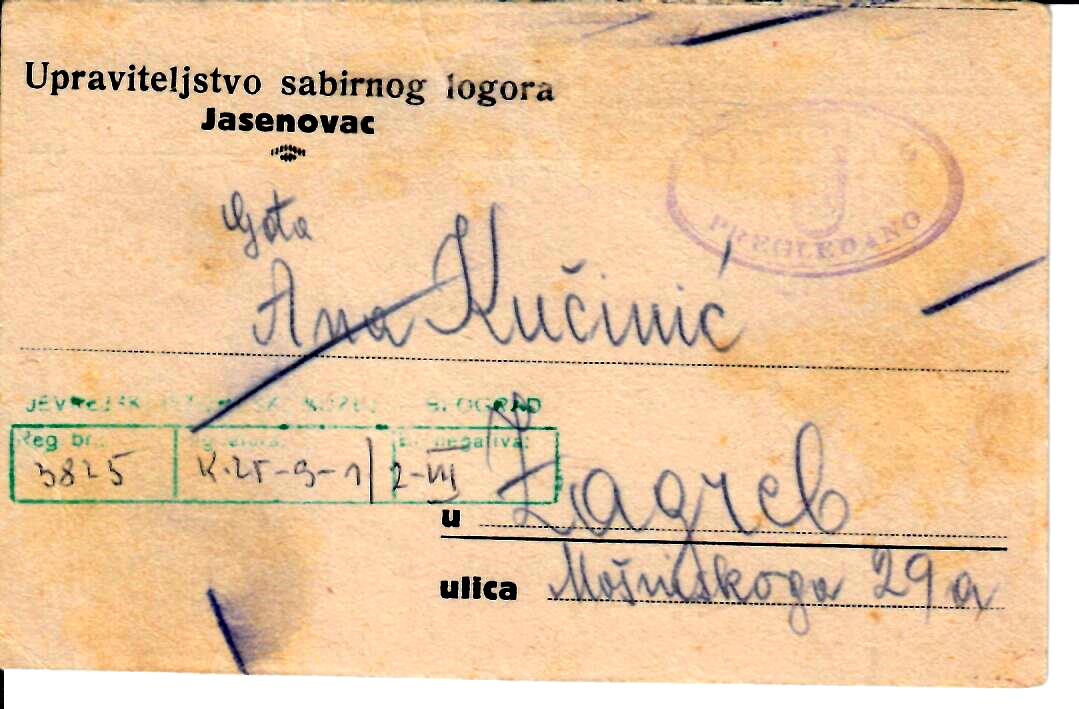 Upraviteljstvo sabirnog logora
Jasenovac
PREGLEDANO
Gđa
Ana Kučinić
BEOGRAD
Reg. br. negativa:
3825 K.25-9-1/2-III
u Zagreb
ulica 29 a